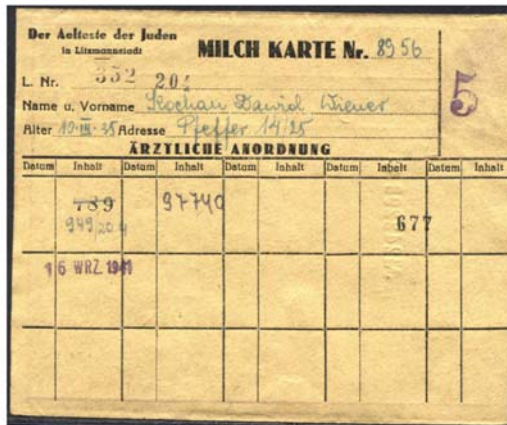 Der Aelteste der Juden
in Litzmannstadt
MILCH KARTE Nr. 8956
5
L. Nr. 352 204
Name u. Vorname Kochan Dawid Wiener
Alter 19·III·35 Adresse Pfeffer 14/25
ÄRZTLICHE ANORDNUNG
Datum Inhalt Datum Inhalt Datum Inhalt Datum Inhalt Datum Inhalt
789 97740
949/204 677
16 WRZ. 1941